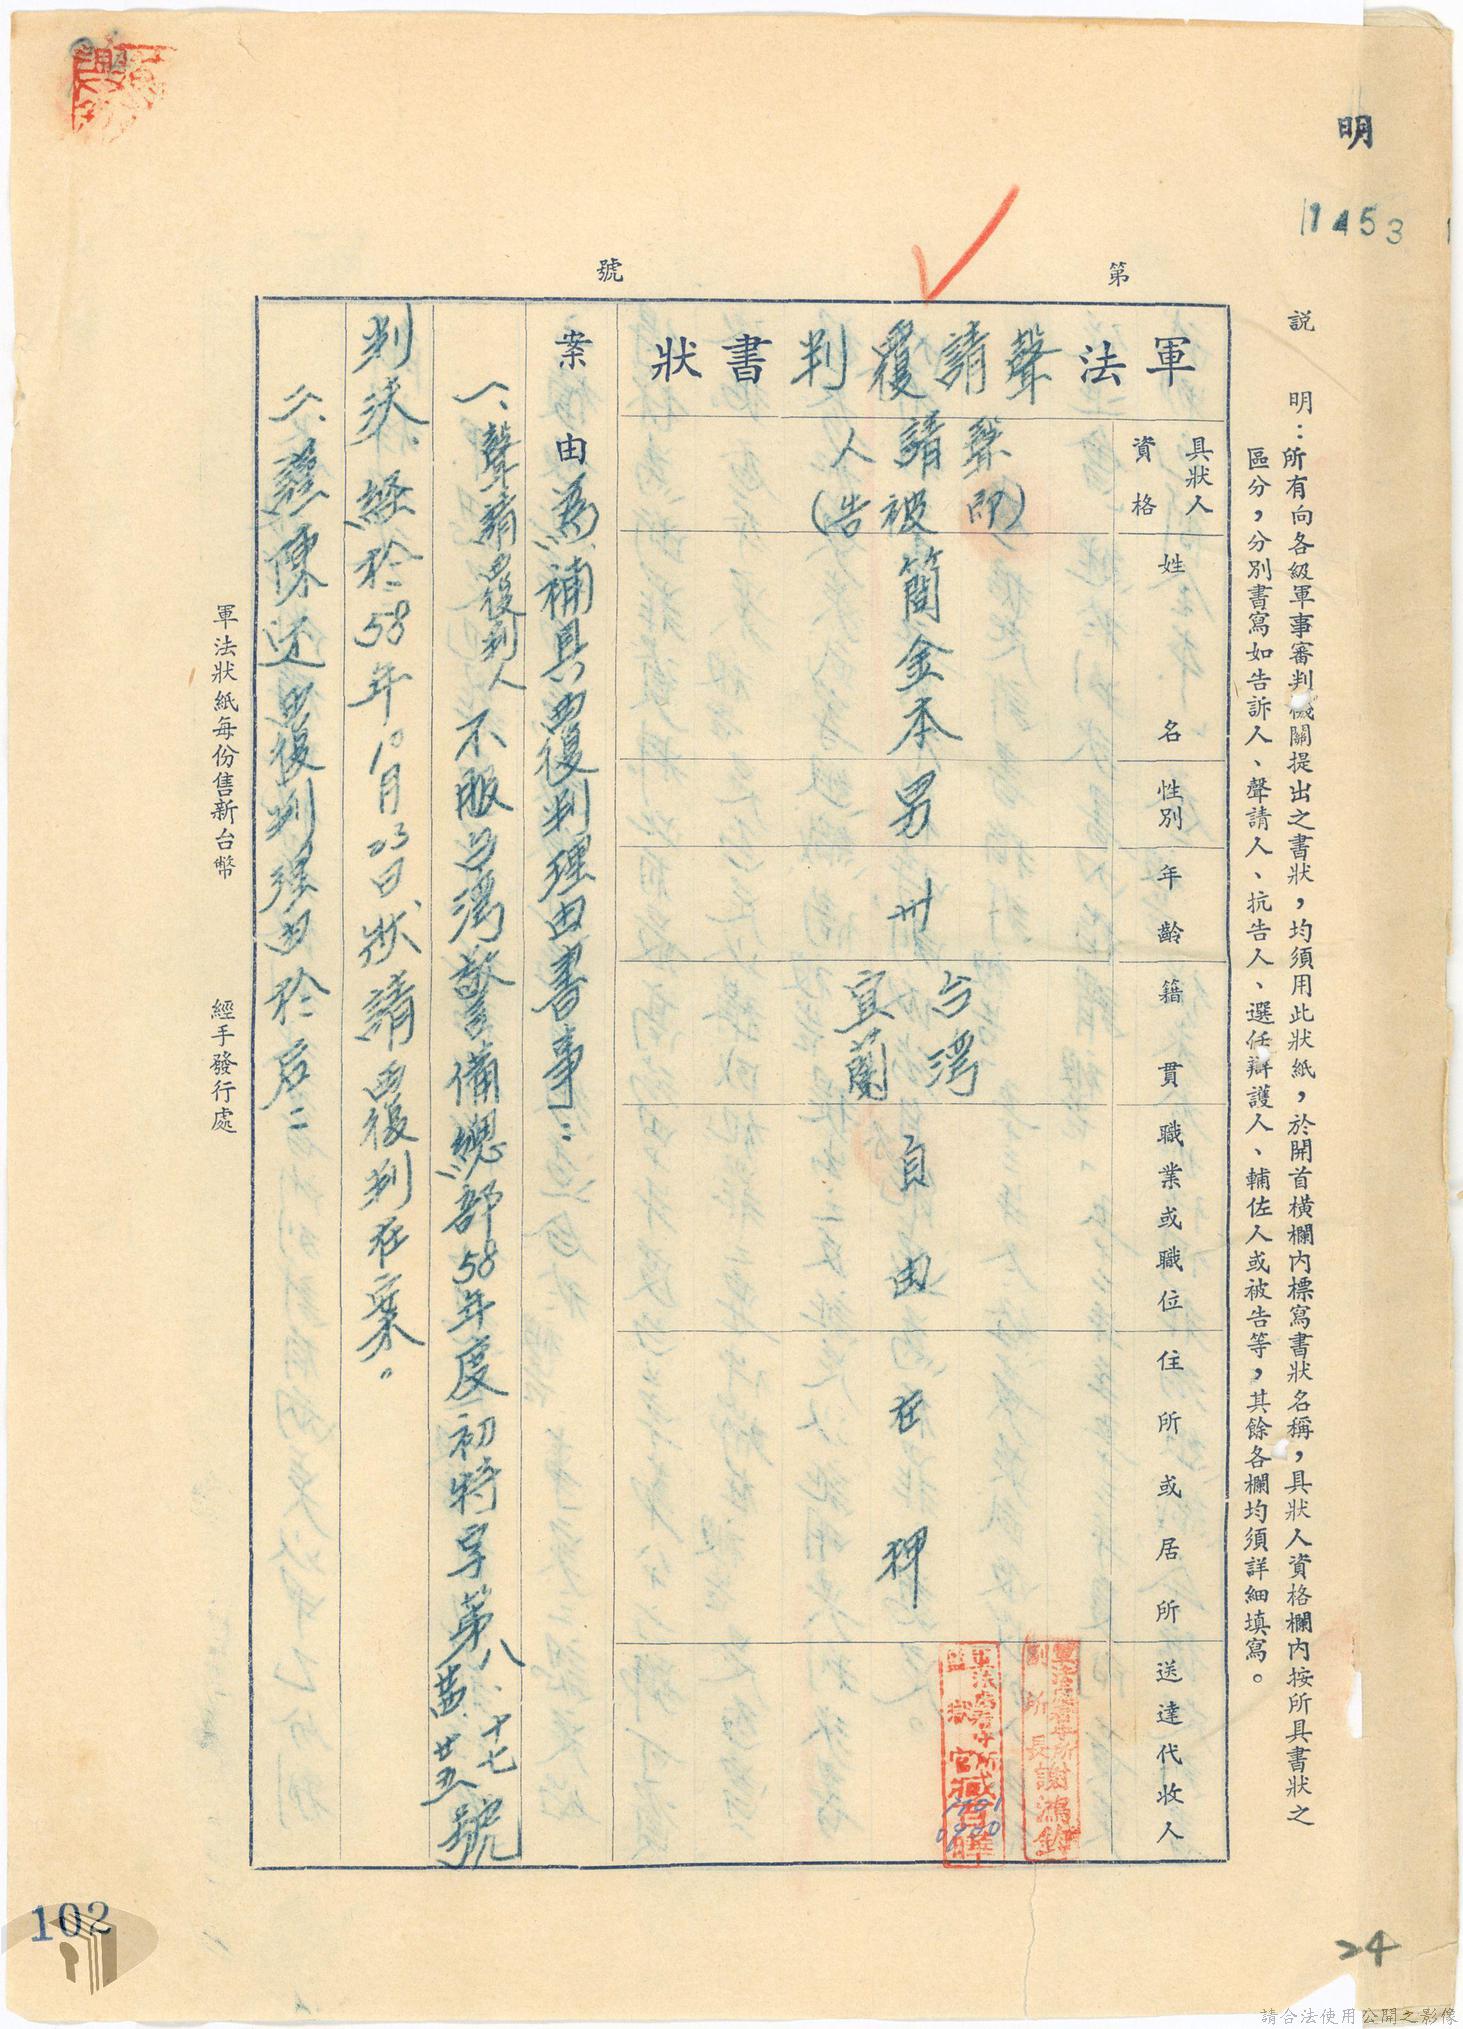 明
11453
第
號
說　明：所有向各級軍事審判機關提出之書狀，均須用此狀紙，於開首橫欄內標寫書狀名稱，具狀人資格欄內按所具書狀之
區分，分別書寫如告訴人、聲請人、抗告人、選任辯護人、輔佐人或被告等，其餘各欄均須詳細填寫。
軍法聲請覆判書狀
具狀人資格
聲請人
(即被告)
姓名
簡金本
性別
男
年齡
卅
籍貫
台灣
宜蘭
職業或職位
自由
住所或居所
在押
送達代收人
軍法處看守所
副所長謝鴻鈞
軍法處看守所
監獄官
1101
0900
案由為補具覆判理由書事：
一、聲請覆判人不服台灣警備總部58年度初特字第八、十七、廿五號
判決、經於58年10月23日狀請覆判在案。
二、謹陳述覆判理由於后：
軍法狀紙每份售新台幣　經手發行處
102
24
請合法使用公開之影像